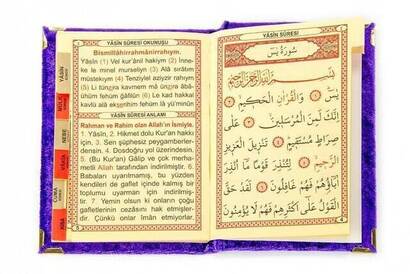 YÂSİN SÛRESİ OKUNUŞU
Bismillâhirrahmânirrahıym.
Yâsîn (1) Vel kur'ânil hakiym (2) İnne-
ke le minel murseliyn (3) Alâ sırâtım
müstekıym (4) Tenziylel aziyzir rahıym
(5) Li tünzira kavmem mâ ünzira âbâ-
ühüm fehüm ğâfilûn (6) Le kad hakkal
kavlü alâ ekserihim fehüm lâ yü'minûn
YÂSİN SÛRESİ ANLAMI
Rahman ve Rahim olan Allah'ın ismiyle.
1. Yâsîn, 2. Hikmet dolu Kur'an hakkı
için, 3. Sen şüphesiz peygamberler-
densin. 4. Dosdoğru yol üzerindesin.
5. (Bu Kur'an) Gâlip ve çok merha-
metli Allah tarafından indirilmiştir. 6.
Babaları uyarılmamış, bu yüzden
kendileri de gaflet içinde kalmış bir
toplumu uyarman için indirilmiş-
tir. 7. Yemin olsun ki onların çoğu
gafletlerinin cezâsını hak etmişler-
dir. Çünkü onlar îmân etmiyorlar.
YÂSİN
MÜLK
NEBE
VÂKIA
CUMA
سُورَةُ يٰسٓ
بِسْمِ اللّٰهِ الرَّحْمٰنِ الرَّحِيمِ
يٰسٓ ﴿١﴾ وَالْقُرْاٰنِ الْحَكِيمِ ﴿٢﴾
اِنَّكَ لَمِنَ الْمُرْسَلِينَ ﴿٣﴾ عَلٰى
صِرَاطٍ مُسْتَقِيمٍ ﴿٤﴾ تَنْزِيلَ الْعَزِيزِ
الرَّحِيمِ ﴿٥﴾ لِتُنْذِرَ قَوْمًا مَٓا اُنْذِرَ
اٰبَٓاؤُهُمْ فَهُمْ غَافِلُونَ ﴿٦﴾ لَقَدْ حَقَّ
الْقَوْلُ عَلٰٓى اَكْثَرِهِمْ فَهُمْ لَا يُؤْمِنُونَ